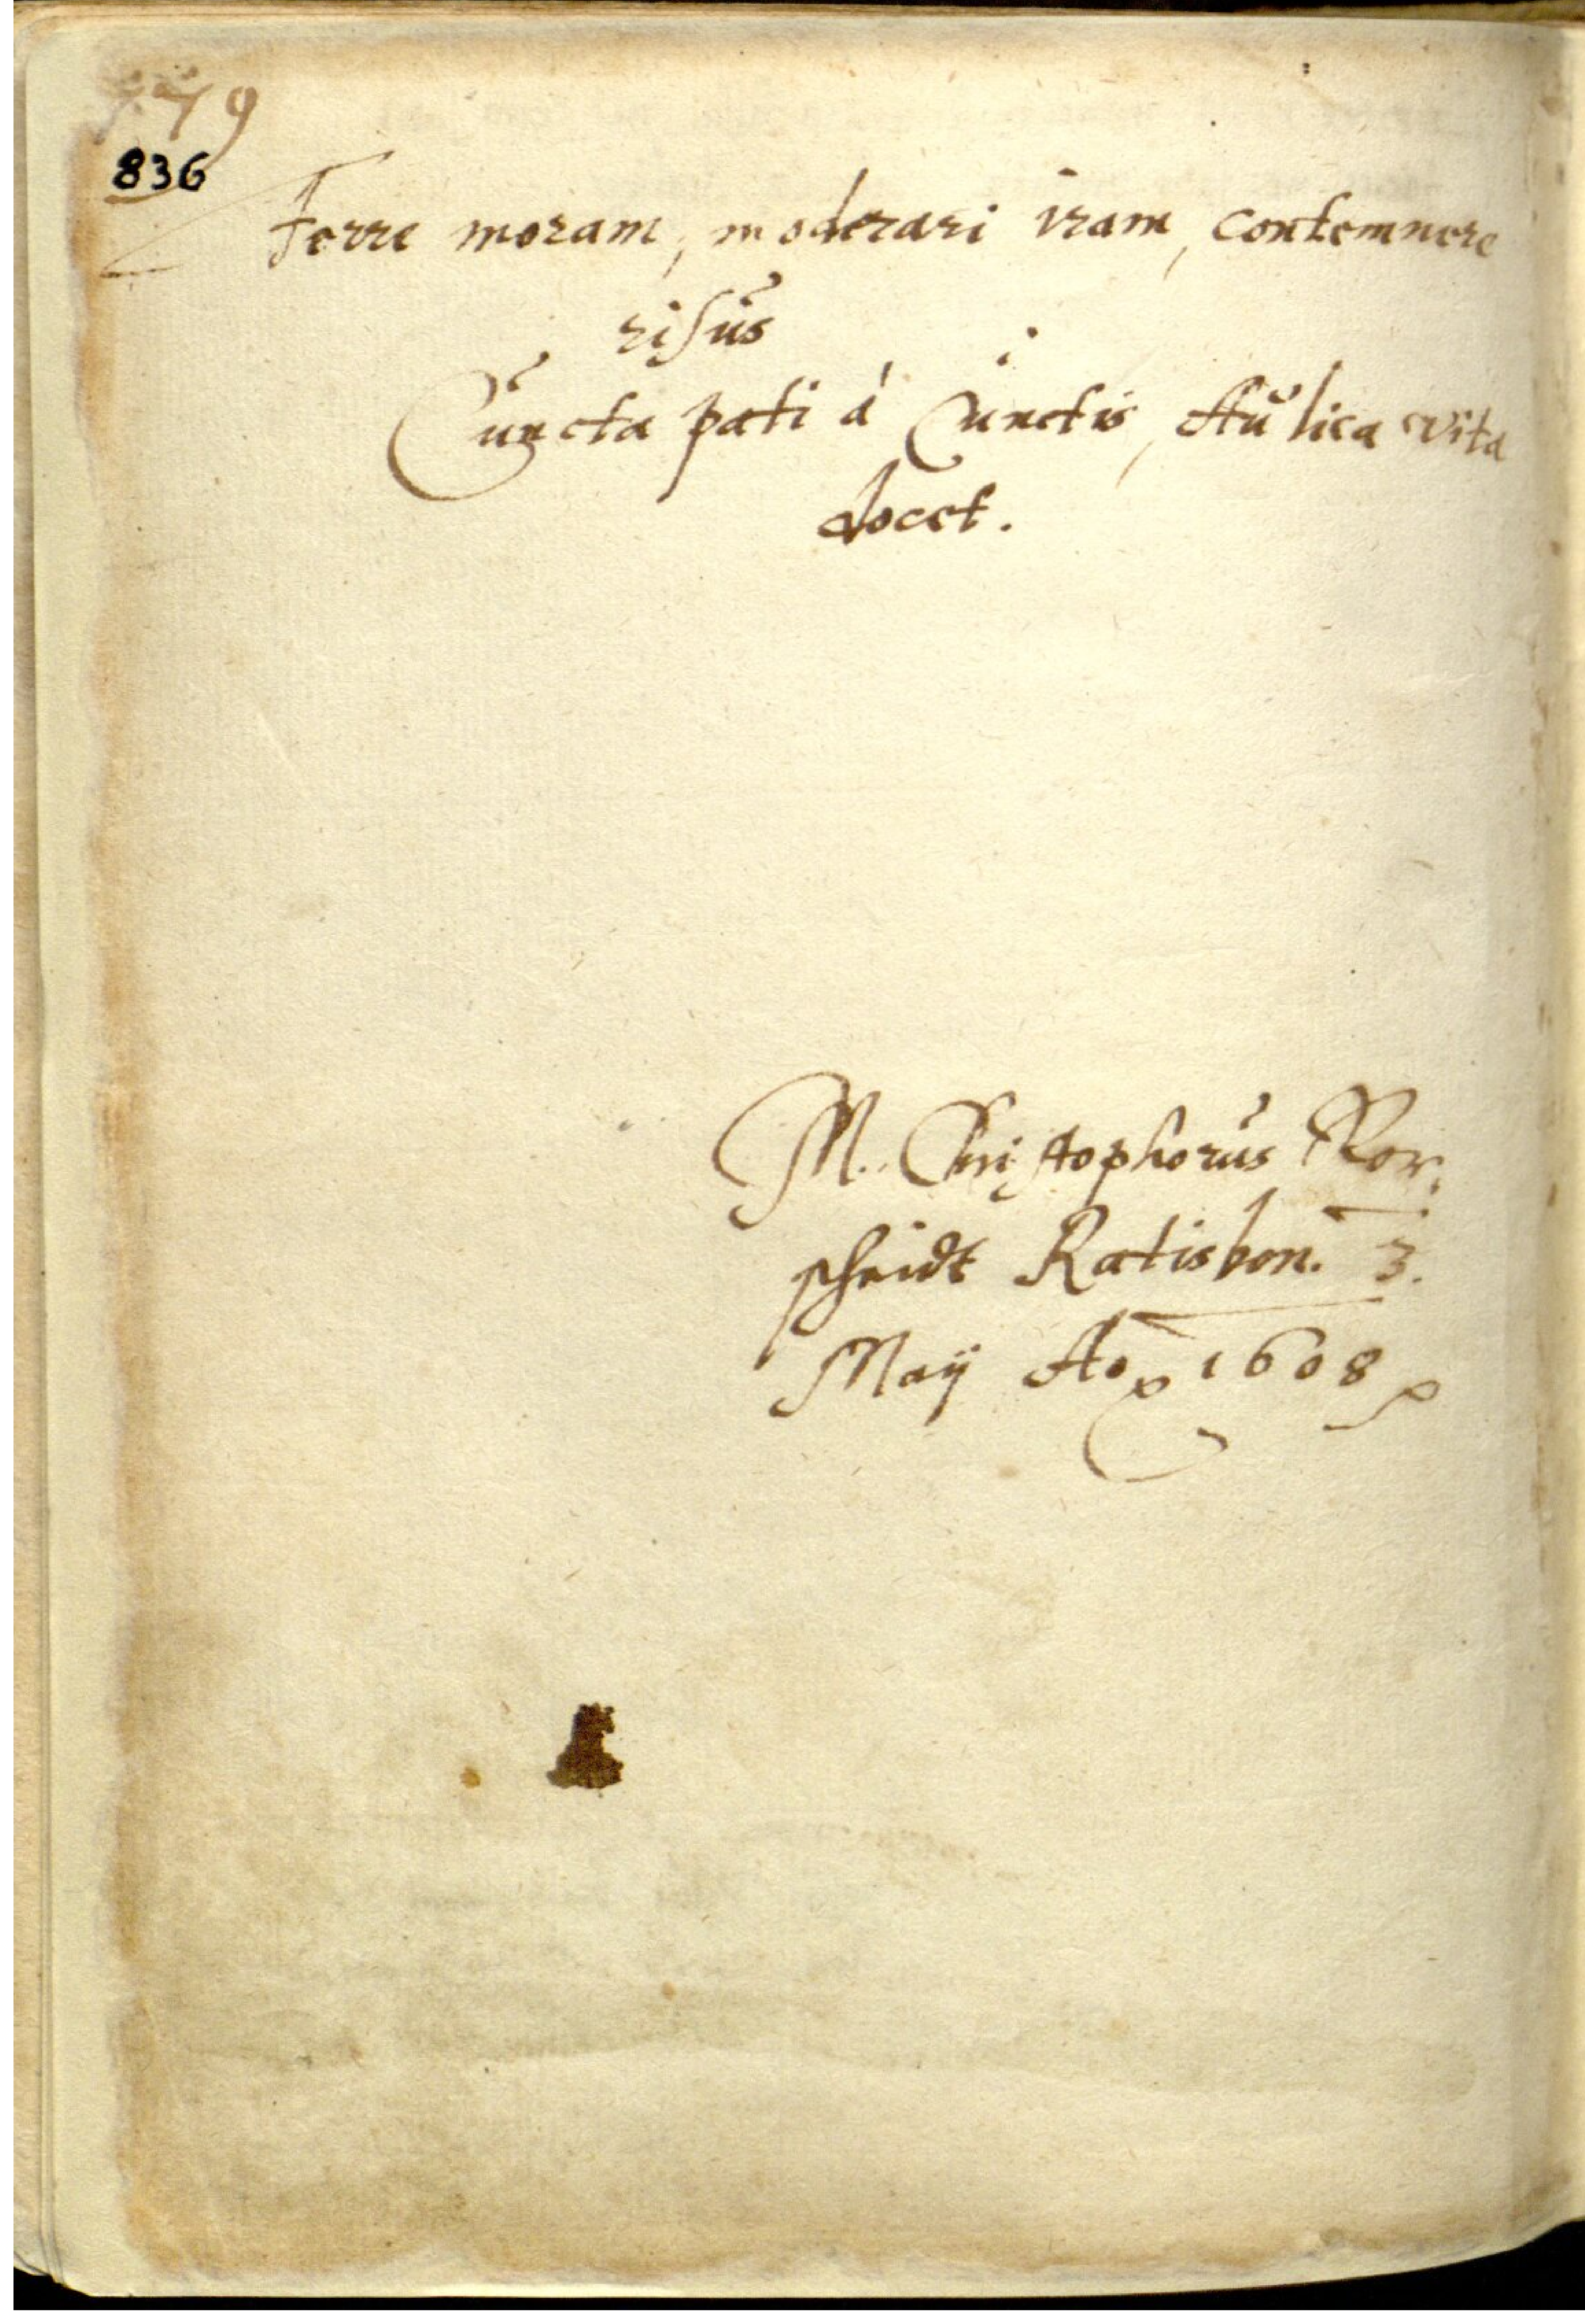 779
836
Ferre moram, moderari iram, contemnere
risus
Cuncta pati á Cunctis, Aulica vita
docet.
M. Christophorus Ror,
scheidt Ratisbon. 3.
Maÿ Ao 1608